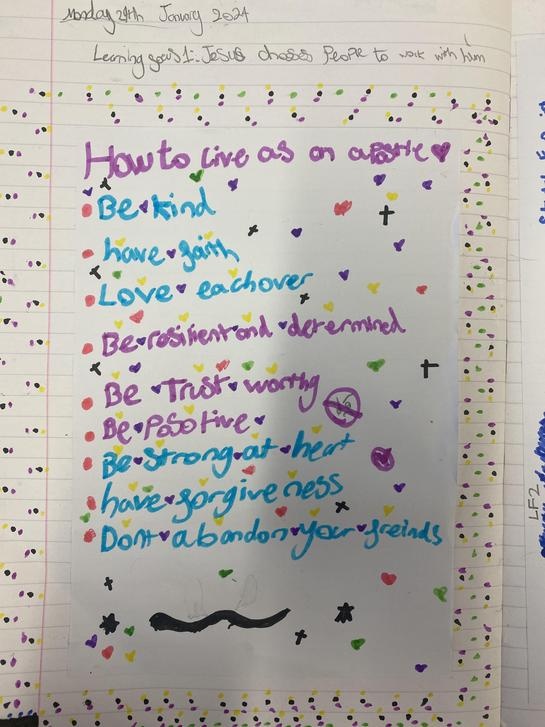 Monday 29th January 2024
Learning focus 1:- Jesus chooses People to work with him
How to live as an apostle
Be kind
have faith
Love eachover
Be resilient and determined
Be Trust worthy
Be Posotive
Be strong at heart
have forgiveness
Dont abandon your freinds
LF2